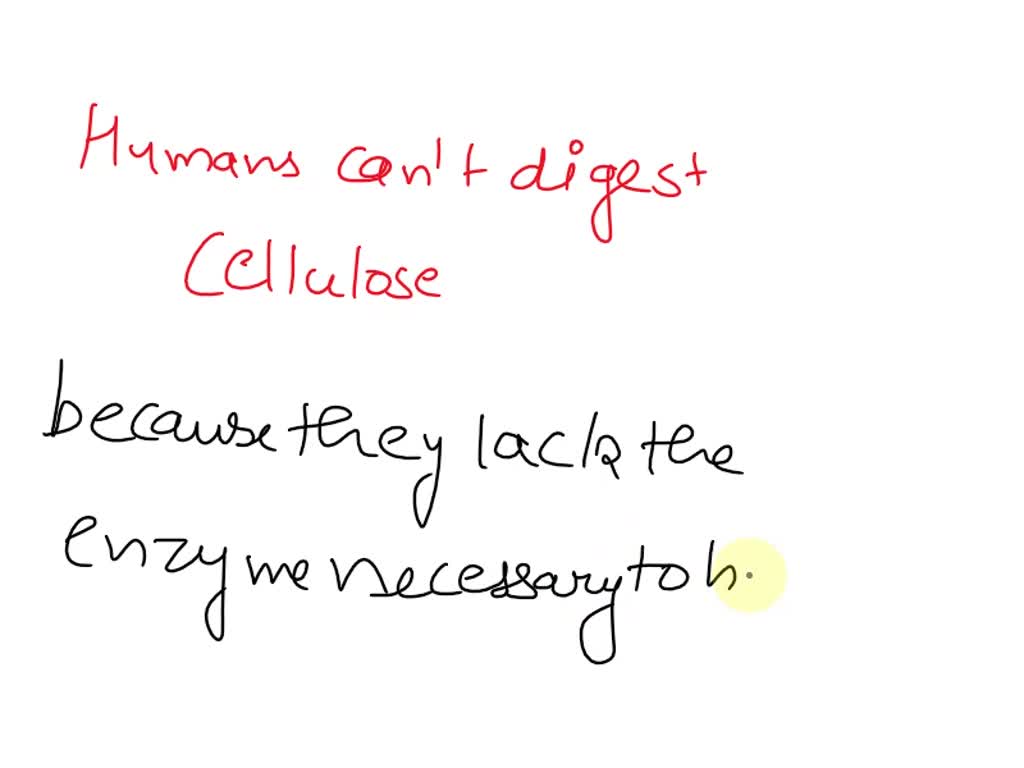 Humans can't digest
Cellulose
because they lack the
enzyme necessary to h